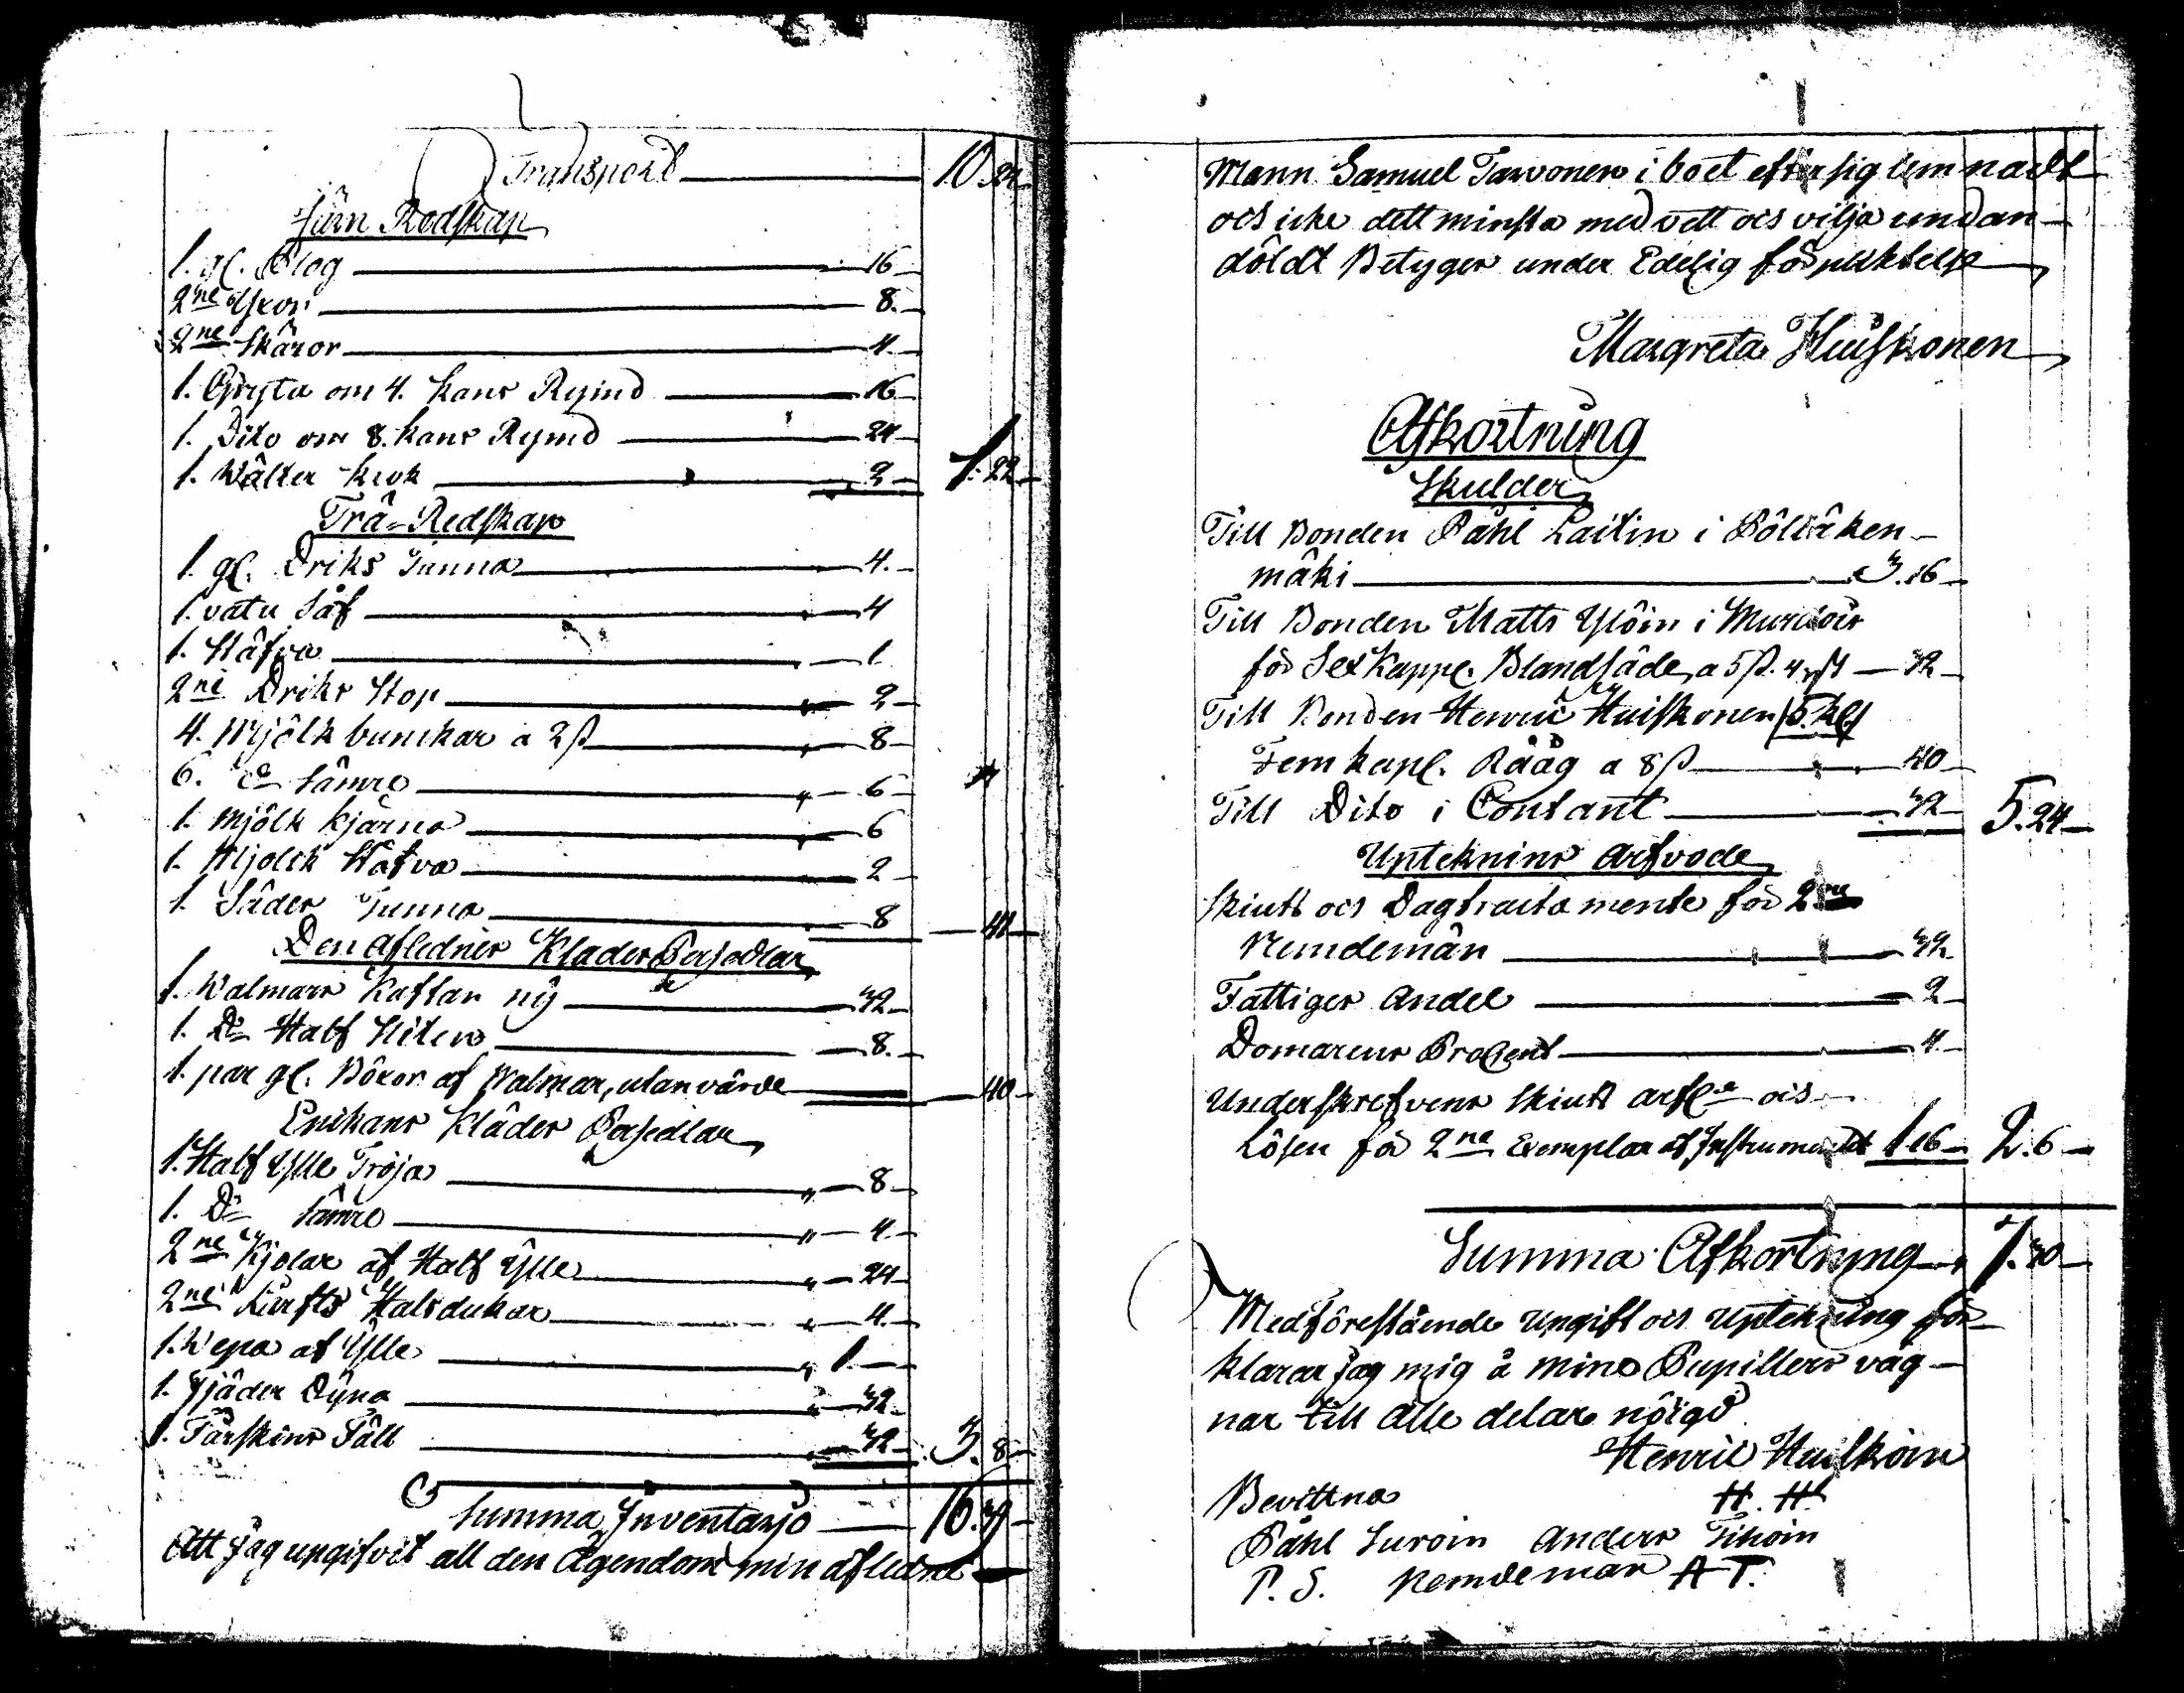 Transport 10. 24
Järn Redskap
1. gl. Plog 16
2ne Yxor 8.
2ne Skäror 4
1. Gryta om 4. kans Rymd 16
1. Dito om 8. kans Rymd 24
1. Wälter krok 2 1. 22
Trä-Redskap
1. gl. Driks Tunna 4.
1. vatu Såf 4
1. Stäfva 1
2ne Driks Stop 2
4. Mjölk bunckar a 2ß 8
6. do sämre 6
1. Mjölk kjärna 6
1. Mjölck Stäfva 2
1. Säder Tunna 8 41
Den afledner Klader Persedlar
1. Walmars Kaftan nÿ 32
1. Do Half Sliten 8.
1. par gl. Böxor af Walmar, utan värde 40
Enikans Kläder Persedlar
1. Half Ylle Tröja 8
1. Do sämre 4.
2ne Kjolar af Half Ylle 24
2ne Lärfts Halsdukar 4.
1. Wepa af Ylle 1
1. Fjäder Dyna 32
1. Fårskins Fäll 32 3. 8
Summa Inventarjo 16. 39
Att Jag upgifvit all den Ägendom min afledne
Mann Samuel Tarvonen i boet efter sig lemnadt
och icke dett minsta med vett och vilja undan-
döldt Betyger under Edelig förpliktelse
Margreta Huiskonen
Afkortning
Skulder
Till Bonden Påhl Laitin i Pölläken-
mäki 3. 16
Till Bonden Matts Ylöin i
för Sex Kappl. Blandsäde, a 5ß. 4 rst 32
Till Bonden Henric Huiskonen (5. kl)
Fem kapl. Rååg a 8ß 40
Till Dito i Contant 32 5. 24
Uptecknins arfvode
Skiuts och Dagtractamente för 2ne
Nemdemän 32
Fattiger Andel 2
Domarens Procent 4
Underskrefvens Skiuts arfde och
Lösen för 2ne Exemplar af Instrumentet 1. 16 2. 6
Summa Afkortning 7. 30
Med förestående upgift och uptekning för-
klarar Jag mig å mina Pupillers väg-
nar till alle delar nöigd
Henric Huiskoin
Bevittna H. H
Påhl Suroin Anders Tikoin
P. S. Nemdemän A T.